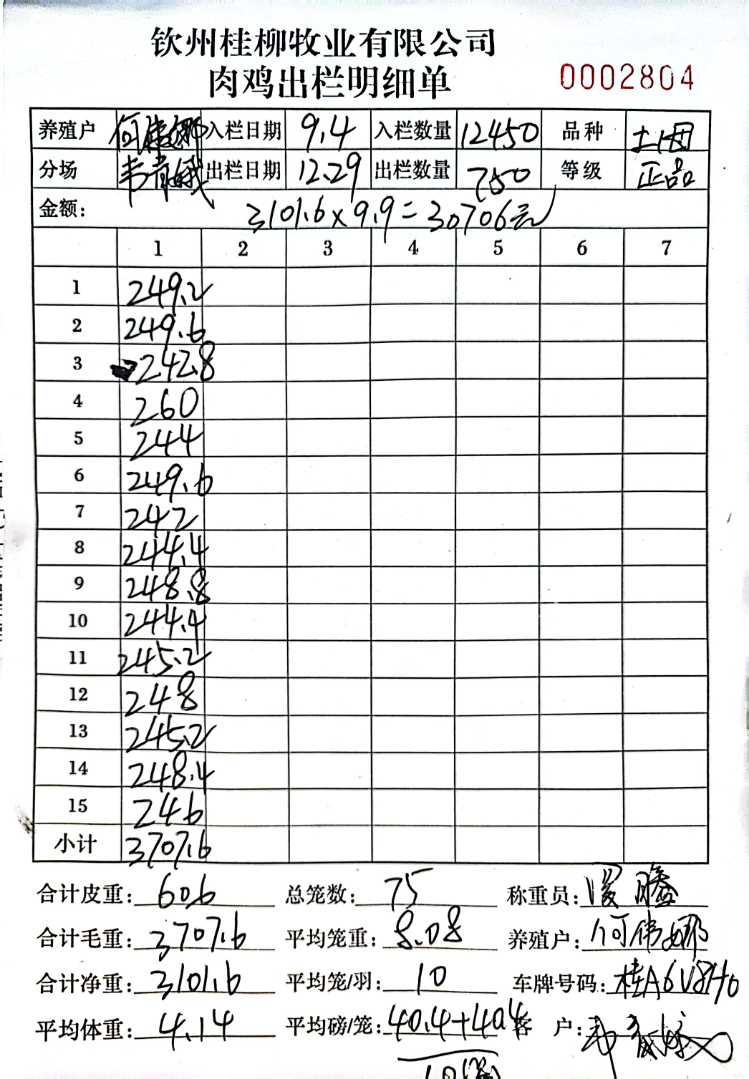 钦州桂柳牧业有限公司
肉鸡出栏明细单 0002804
养殖户 何伟娜 入栏日期 9.4 入栏数量 12450 品种
分场 出栏日期 12.29 出栏数量 750 等级 正品
金额: 3101.6×9.9=30706元
1 2 3 4 5 6 7
1 249.2
2 249.6
3 242.8
4 260
5 244
6 249.6
7 242
8 244.4
9 248.8
10 244.4
11 245.2
12 248
13 245.2
14 248.4
15 246
小计 3707.6
合计皮重: 606 总笼数: 75 称重员:
合计毛重: 3707.6 平均笼重: 8.08 养殖户: 何伟娜
合计净重: 3101.6 平均笼/羽: 10 车牌号码:
平均体重: 4.14 平均磅/笼: 40.4+40.4 客 户: